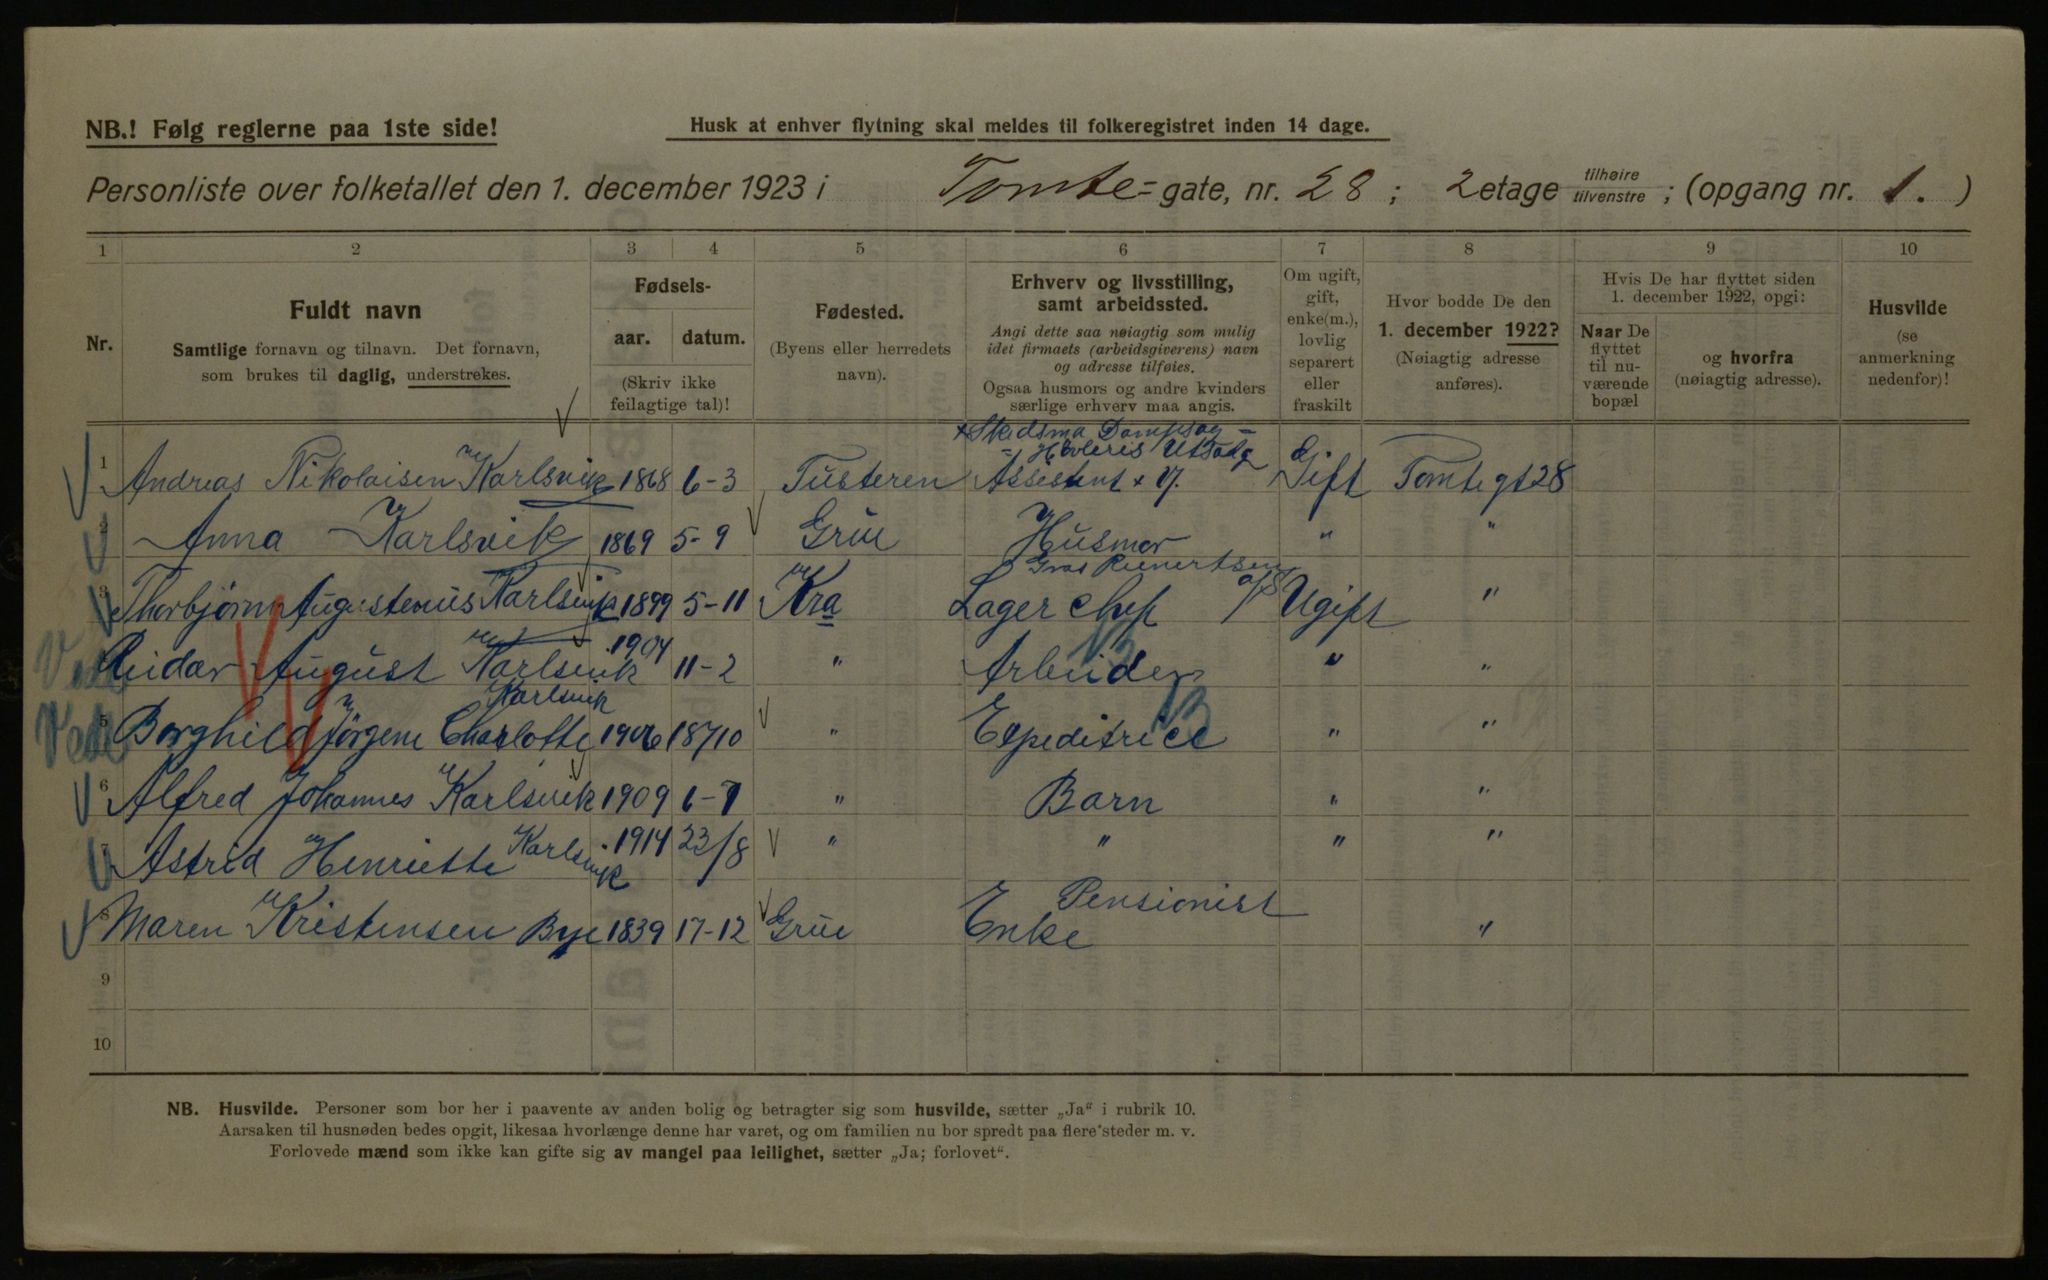 NB.! Følg reglerne paa 1ste side!
Husk at enhver flytning skal meldes til folkeregistret inden 14 dage.
Personliste over folketallet den 1. december 1923 i Tomte=gate, nr. 28; 2 etage tilhøire tilvenstre; (opgang nr. 1.)
1 2 3 4 5 6 7 8 9 10
Nr.
Fuldt navn
Samtlige fornavn og tilnavn. Det fornavn,
som brukes til daglig, understrekes.
Fødsels-
aar. datum.
(Skriv ikke
feilagtige tal)!
Fødested.
(Byens eller herredets
navn).
Erhverv og livsstilling,
samt arbeidssted.
Angi dette saa nøiagtig som mulig
idet firmaets (arbeidsgiverens) navn
og adresse tilføies.
Ogsaa husmors og andre kvinders
særlige erhverv maa angis.
Om ugift,
gift,
enke(m.),
lovlig
separert
eller
fraskilt
Hvor bodde De den
1. december 1922?
(Nøiagtig adresse
anføres).
Hvis De har flyttet siden
1. december 1922, opgi:
Naar De
flyttet
til nu-
værende
bopæl
og hvorfra
(nøiagtig adresse).
Husvilde
(se
anmerkning
nedenfor)!
x Skedsmo Dampsag =
= Høvleris Utsalg
1 Andreas Nikolaisen Karlsvik 1868 6-3 Tusteren Assistent x Gift Tomtegt 28
2 Anna Karlsvik 1869 5-9 Grue Husmor " "
3 Thorbjørn Augustenius Karlsvik 1899 5-11 Kra Lager chef a/s Ugift "
Reidar August Karlsvik 1904 11-2 " Arbeider " "
5 Borghild Jørgene Charlotte Karlsvik 1906 18/10 " Expeditrice " "
6 Alfred Johannes Karlsvik 1909 6-7 " Barn " "
7 Astrid Henriette Karlsvik 1914 23/8 " " " "
8 Maren Kristensen Bye 1839 17-12 Grue Enke Pensionist "
9
10
NB. Husvilde. Personer som bor her i paavente av anden bolig og betragter sig som husvilde, sætter „Ja“ i rubrik 10.
Aarsaken til husnøden bedes opgit, likesaa hvorlænge denne har varet, og om familien nu bor spredt paa flere steder m. v.
Forlovede mænd som ikke kan gifte sig av mangel paa leilighet, sætter „Ja; forlovet“.